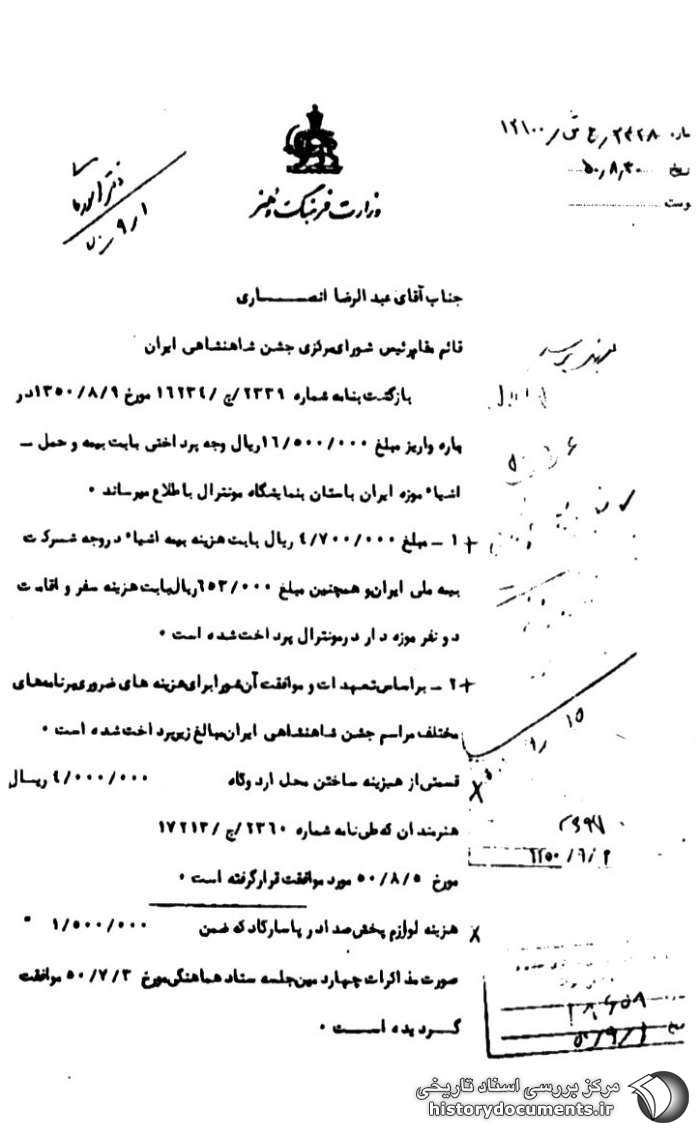 شماره ۲۳۲۸/ج ش/۱۲۱۰۰
تاریخ ۵۰٫۸٫۳۰
پیوست
وزارت فرهنگ و هنر
دفتر امور
۵۰/۹/۱
جناب آقای عبدالرضا انصــــاری
قائم مقام رئیس شورای مرکزی جشن شاهنشاهی ایران
بازگشت بنامه شماره ۲۳۳۹/ج/۱۶۲۳۴ مورخ ۱۳۵۰/۸/۹ در
باره واریز مبلغ ۱۶/۵۰۰/۰۰۰ ریال وجه پرداختی بابت بیمه و حمل ـ
اشیاء موزه ایران باستان بنمایشگاه مونترال باطلاع میرساند ۰
+ ۱ ـ مبلغ ۴/۷۰۰/۰۰۰ ریال بابت هزینه بیمه اشیاء دروجه شرکت
بیمه ملی ایران و همچنین مبلغ ۶۵۳/۰۰۰ ریال بابت هزینه سفر و اقامت
دو نفر موزه دار در مونترال پرداخت شده است ۰
+ ۲ ـ براساس تعهدات و موافقت آن شورا برای هزینه های ضروری برنامه های
مختلف مراسم جشن شاهنشاهی ایران مبالغ زیر پرداخت شده است ۰
۱۵
x قسمتی از هزینه ساختن محل اردوگاه ۴/۰۰۰/۰۰۰ ریـال
هنرمندان که طی نامه شماره ۲۳۶۰/ج/۱۷۲۱۳
مورخ ۵۰/۸/۵ مورد موافقت قرار گرفته است ۰
x هزینه لوازم پخش صدا در پاسارگاد که ضمن ۱/۵۰۰/۰۰۰ "
صورت مذاکرات چهاردمین جلسه ستاد هماهنگی مورخ ۵۰/۷/۳ موافقت
گردیده اســـت ۰
۵۰/۹/۱
مرکز بررسی اسناد تاریخی
historydocuments.ir